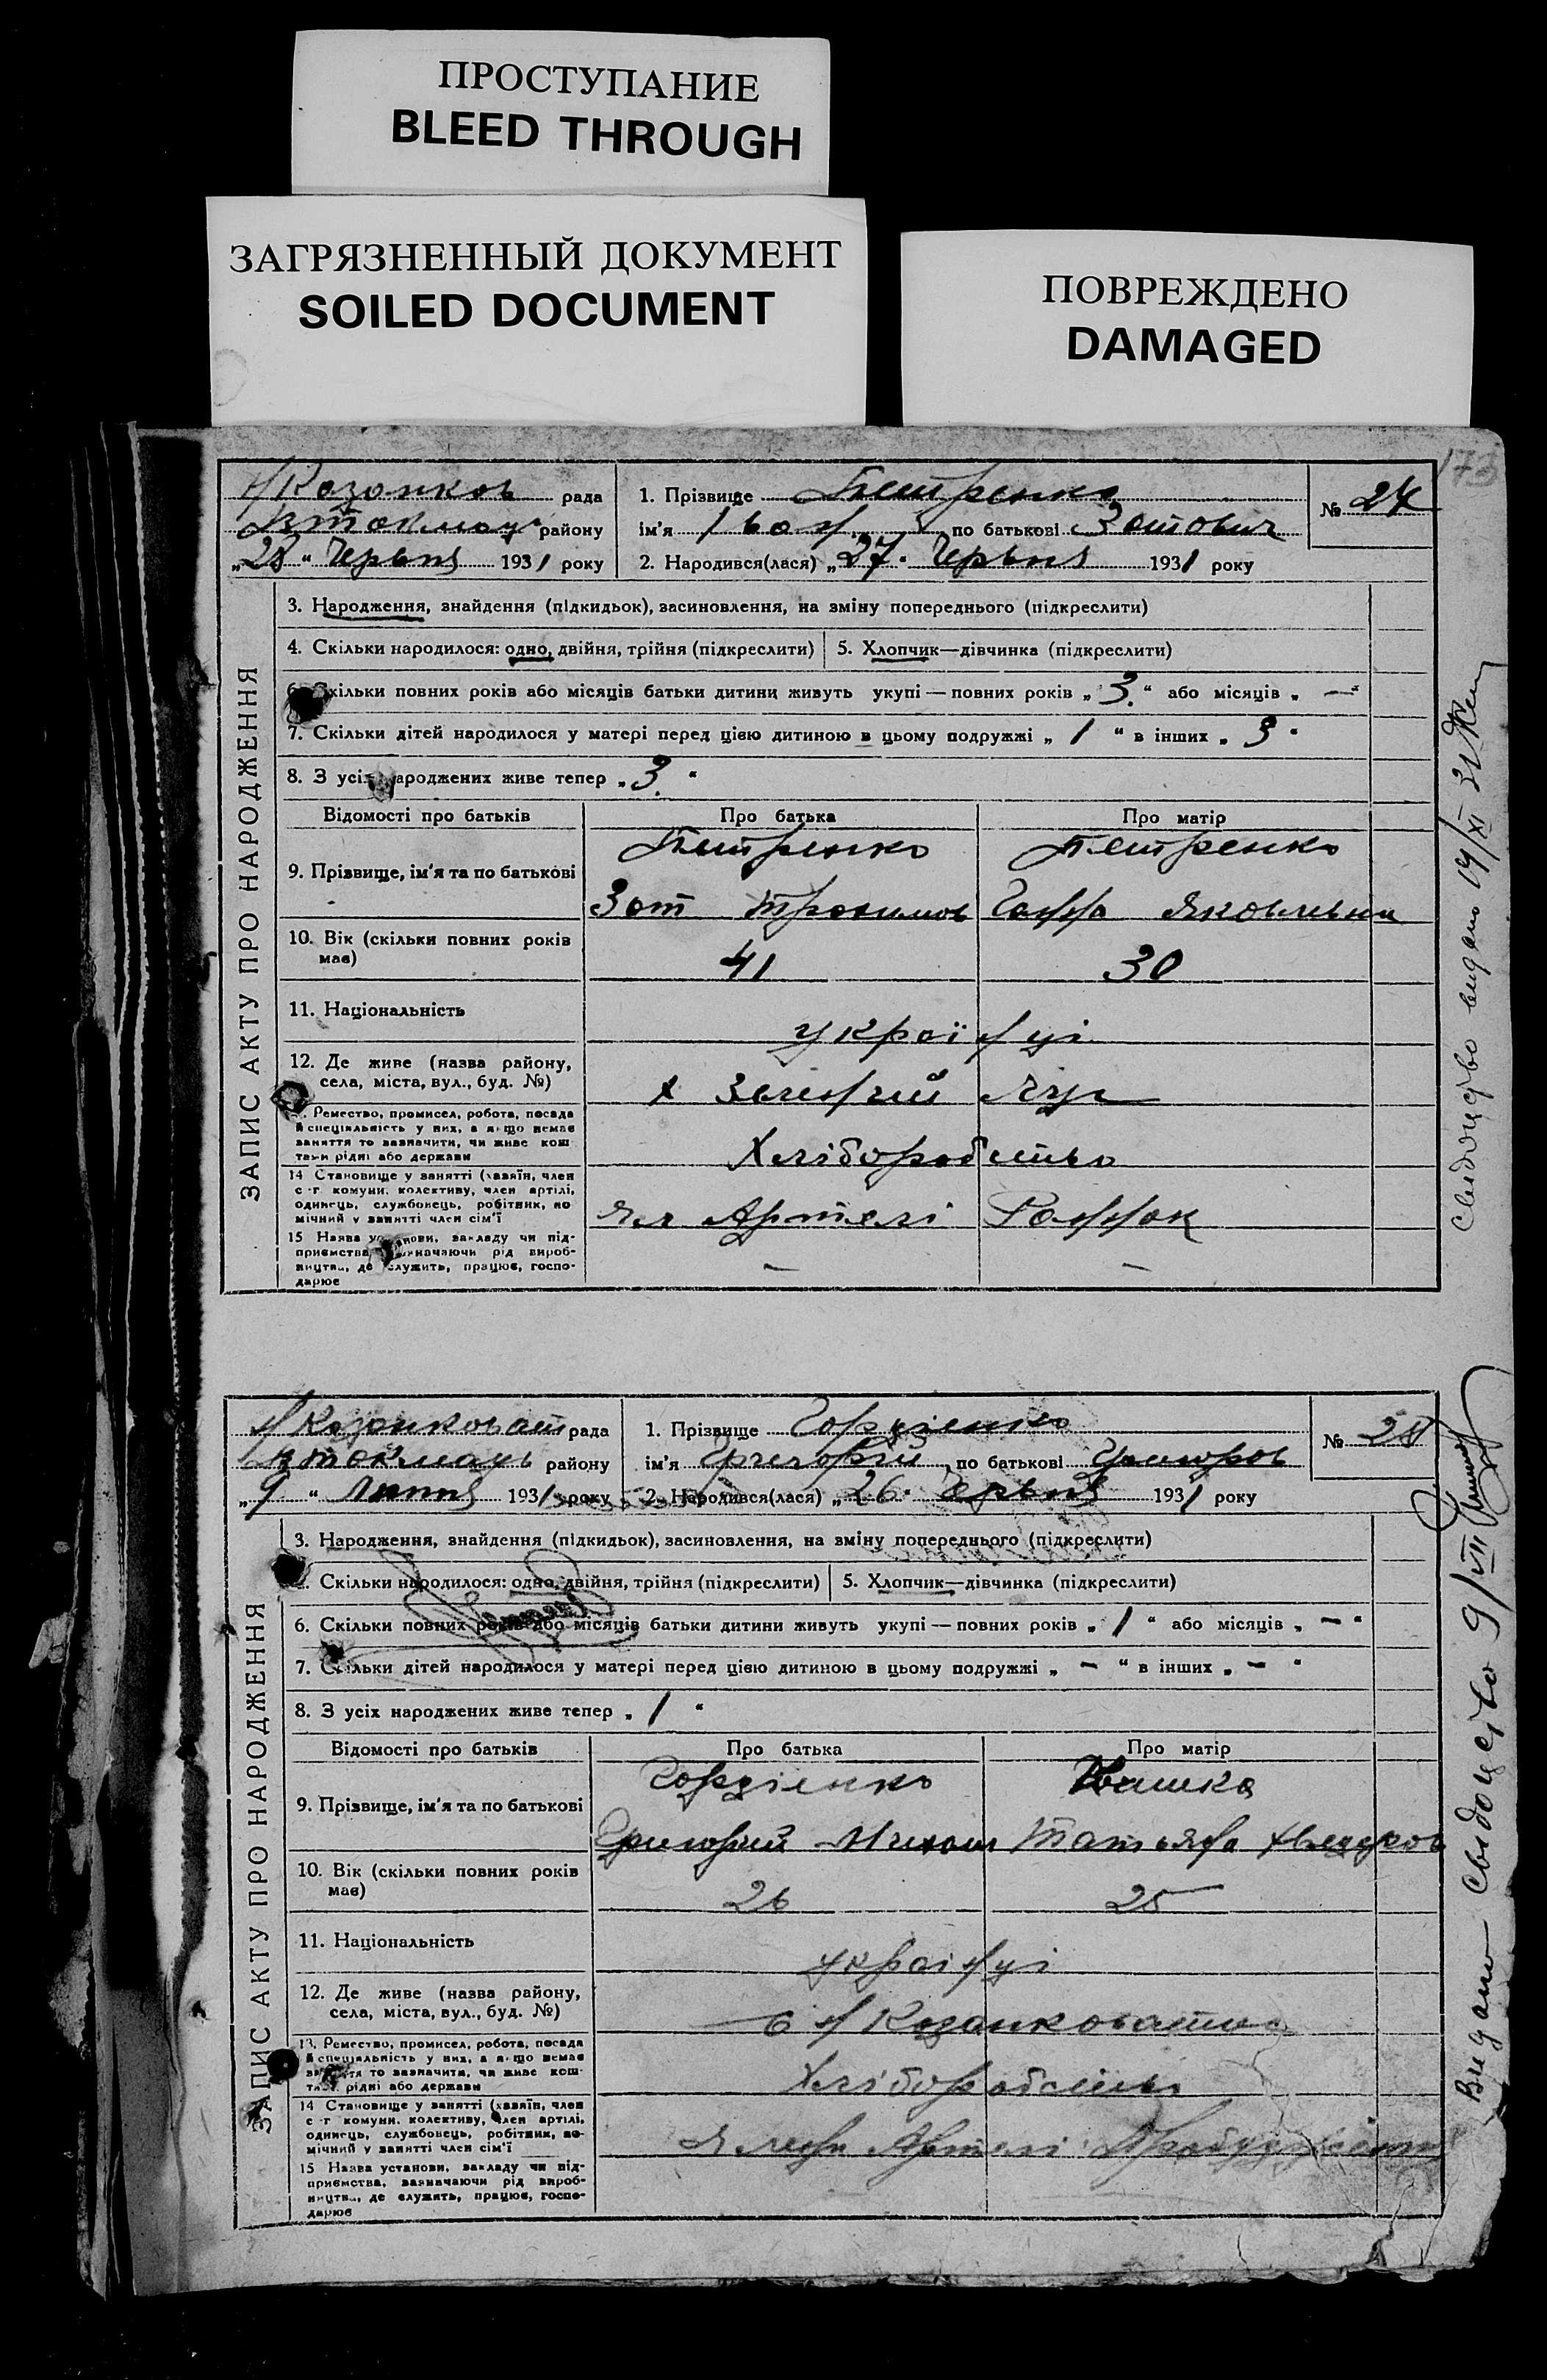 ПРОСТУПАНИЕ
BLEED THROUGH
ЗАГРЯЗНЕННЫЙ ДОКУМЕНТ
SOILED DOCUMENT
ПОВРЕЖДЕНО
DAMAGED
173
ЗАПИС АКТУ ПРО НАРОДЖЕННЯ
Н Козонков рада
району
„28“ Червня 1931 року
1. Прізвище Петренко
ім'я Іван по батькові Зотович
2. Народився(лася) „27“ Червня 1931 року
№ 27
3. Народження, знайдення (підкидьок), засиновлення, на зміну попереднього (підкреслити)
4. Скільки народилося: одно, двійня, трійня (підкреслити)
5. Хлопчик—дівчинка (підкреслити)
6. Скільки повних років або місяців батьки дитини живуть укупі — повних років „3“ або місяців „—“
7. Скільки дітей народилося у матері перед цією дитиною в цьому подружжі „1“ в інших „3“
8. З усіх народжених живе тепер „3“
Відомості про батьків
Про батька
Про матір
9. Прізвище, ім'я та по батькові
Петренко
Петренко
Зот Трохимов
Ганна Яковлевна
10. Вік (скільки повних років має)
41
30
11. Національність
українці
12. Де живе (назва району,
села, міста, вул., буд. №)
х Зелений Луг
13. Ремество, промисел, робота, посада
й спеціяльність у них, а якщо немає
заняття то зазначити, чи живе кош-
тами рідні або держави
Хліборобство
14 Становище у занятті (хазяїн, член
с.-г комуни, колективу, член артілі,
одинець, службовець, робітник, по-
мічний у занятті член сім'ї
Артелі
15 Назва установи, закладу чи під-
приємства, зазначаючи рід вироб-
ництва, де служить, працює, госпо-
дарює
—
—
Свидоцтво видано 19/XI 31
ЗАПИС АКТУ ПРО НАРОДЖЕННЯ
Н Козанковат рада
району
„9“ Липня 1931 року
1. Прізвище Гордіенко
ім'я Григорій по батькові Григоров
2. Народився(лася) „26“ Червня 1931 року
№ 28
3. Народження, знайдення (підкидьок), засиновлення, на зміну попереднього (підкреслити)
4. Скільки народилося: одно, двійня, трійня (підкреслити)
5. Хлопчик—дівчинка (підкреслити)
6. Скільки повних років або місяців батьки дитини живуть укупі — повних років „1“ або місяців „—“
7. Скільки дітей народилося у матері перед цією дитиною в цьому подружжі „—“ в інших „—“
8. З усіх народжених живе тепер „1“
Відомості про батьків
Про батька
Про матір
9. Прізвище, ім'я та по батькові
Гордіенко
Квашка
Григорий
Татьяна
10. Вік (скільки повних років має)
26
25
11. Національність
українці
12. Де живе (назва району,
села, міста, вул., буд. №)
с Н Козанковатка
13. Ремество, промисел, робота, посада
й спеціяльність у них, а якщо немає
заняття то зазначити, чи живе кош-
тами рідні або держави
Хліборобство
14 Становище у занятті (хазяїн, член
с.-г комуни, колективу, член артілі,
одинець, службовець, робітник, по-
мічний у занятті член сім'ї
Член Артелі
15 Назва установи, закладу чи під-
приємства, зазначаючи рід вироб-
ництва, де служить, працює, госпо-
дарює
Видано свідоцтво 9/VII